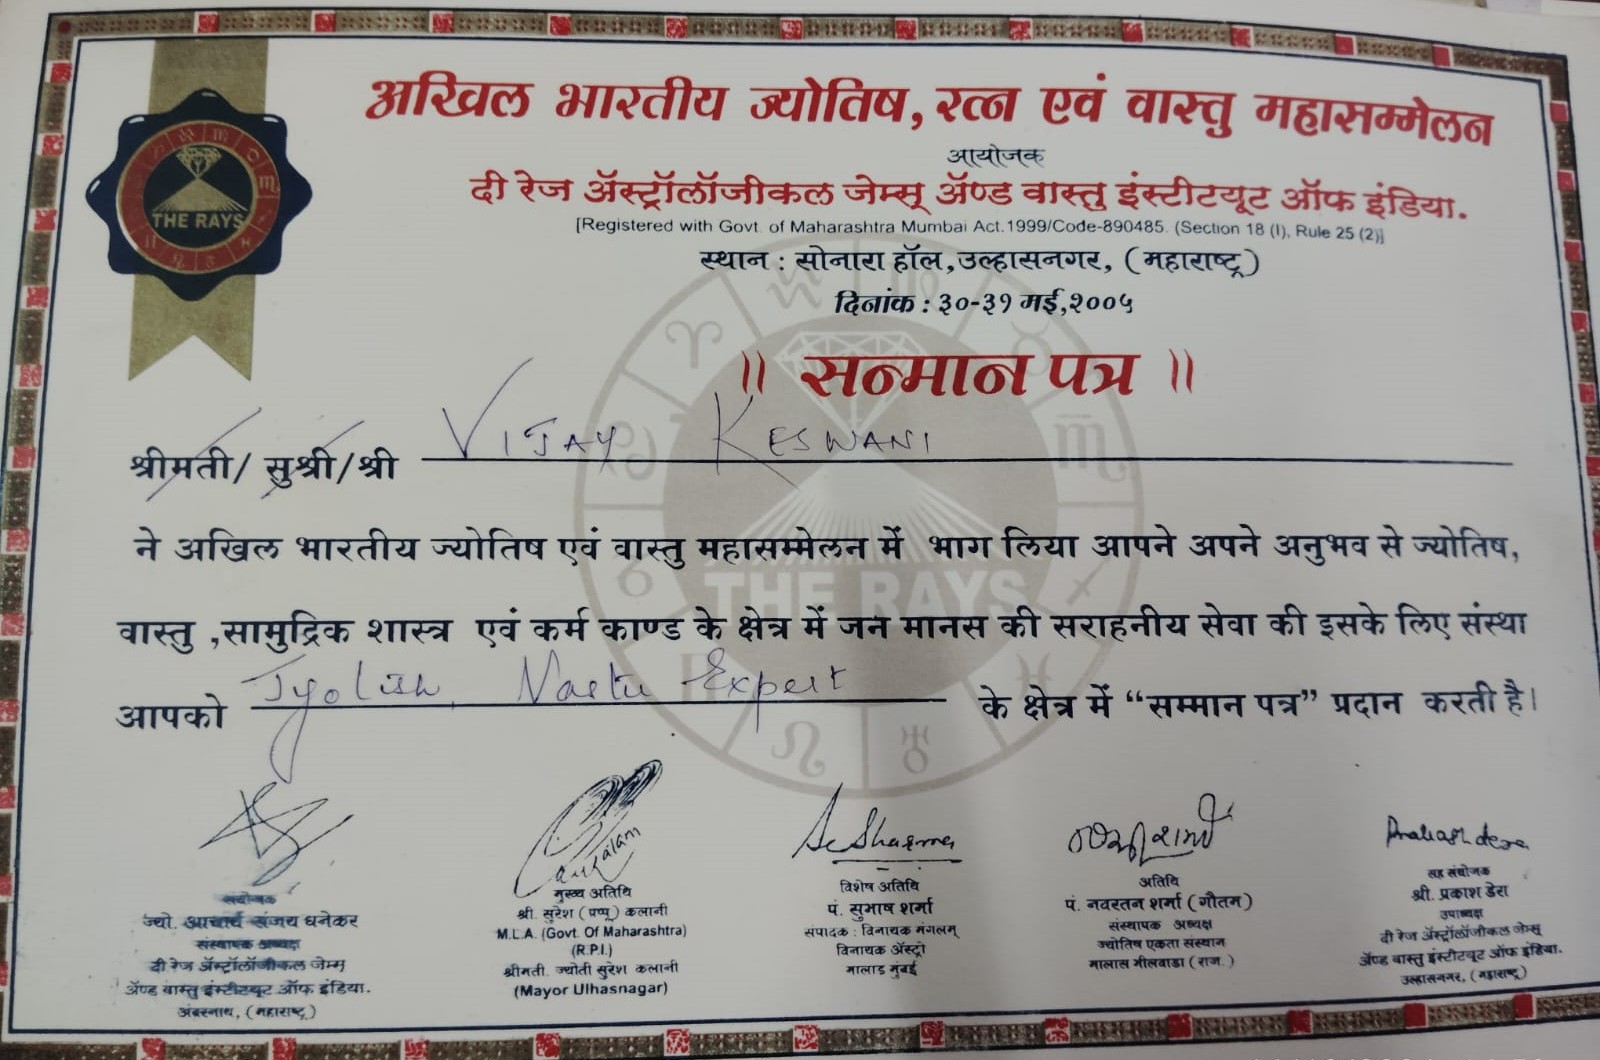 अखिल भारतीय ज्योतिष, रत्न एवं वास्तु महासम्मेलन
आयोजक
दी रेज ॲस्ट्रॉलॉजीकल जेम्स् ॲण्ड वास्तु इंस्टीटयूट ऑफ इंडिया.
[Registered with Govt. of Maharashtra Mumbai Act.1999/Code-890485. (Section 18 (I), Rule 25 (2)]
THE RAYS
स्थान : सोनारा हॉल, उल्हासनगर, (महाराष्ट्र)
दिनांक : ३०-३१ मई, २००५
॥ सन्मान पत्र ॥
श्रीमती/ सुश्री/श्री VIJAY KESWANI
ने अखिल भारतीय ज्योतिष एवं वास्तु महासम्मेलन में भाग लिया आपने अपने अनुभव से ज्योतिष,
THE RAYS
वास्तु ,सामुद्रिक शास्त्र एवं कर्म काण्ड के क्षेत्र में जन मानस की सराहनीय सेवा की इसके लिए संस्था
आपको Jyotish, Vastu Expert के क्षेत्र में “सम्मान पत्र” प्रदान करती है।
संयोजक
ज्यो. आचार्य संजय धनेकर
संस्थापक अध्यक्ष
दी रेज ॲस्ट्रॉलॉजीकल जेम्स्
ॲण्ड वास्तु इंस्टीटयूट ऑफ इंडिया.
अंबरनाथ, (महाराष्ट्र)
मुख्य अतिथि
श्री. सुरेश (पप्पू) कलानी
M.L.A. (Govt. Of Maharashtra)
(R.P.I.)
श्रीमती. ज्योती सुरेश कलानी
(Mayor Ulhasnagar)
Sc Sharma
विशेष अतिथि
पं. सुभाष शर्मा
संपादक : विनायक मंगलम्
विनायक ॲस्ट्रो
मालाड मुंबई
अतिथि
पं. नवरतन शर्मा (गौतम)
संस्थापक अध्यक्ष
ज्योतिष एकता संस्थान
मालास भीलवाडा (राज.)
Prakash dera
सह संयोजक
श्री. प्रकाश डेरा
उपाध्यक्ष
दी रेज ॲस्ट्रॉलॉजीकल जेम्स्
ॲण्ड वास्तु इंस्टीटयूट ऑफ इंडिया.
उल्हासनगर, (महाराष्ट्र)